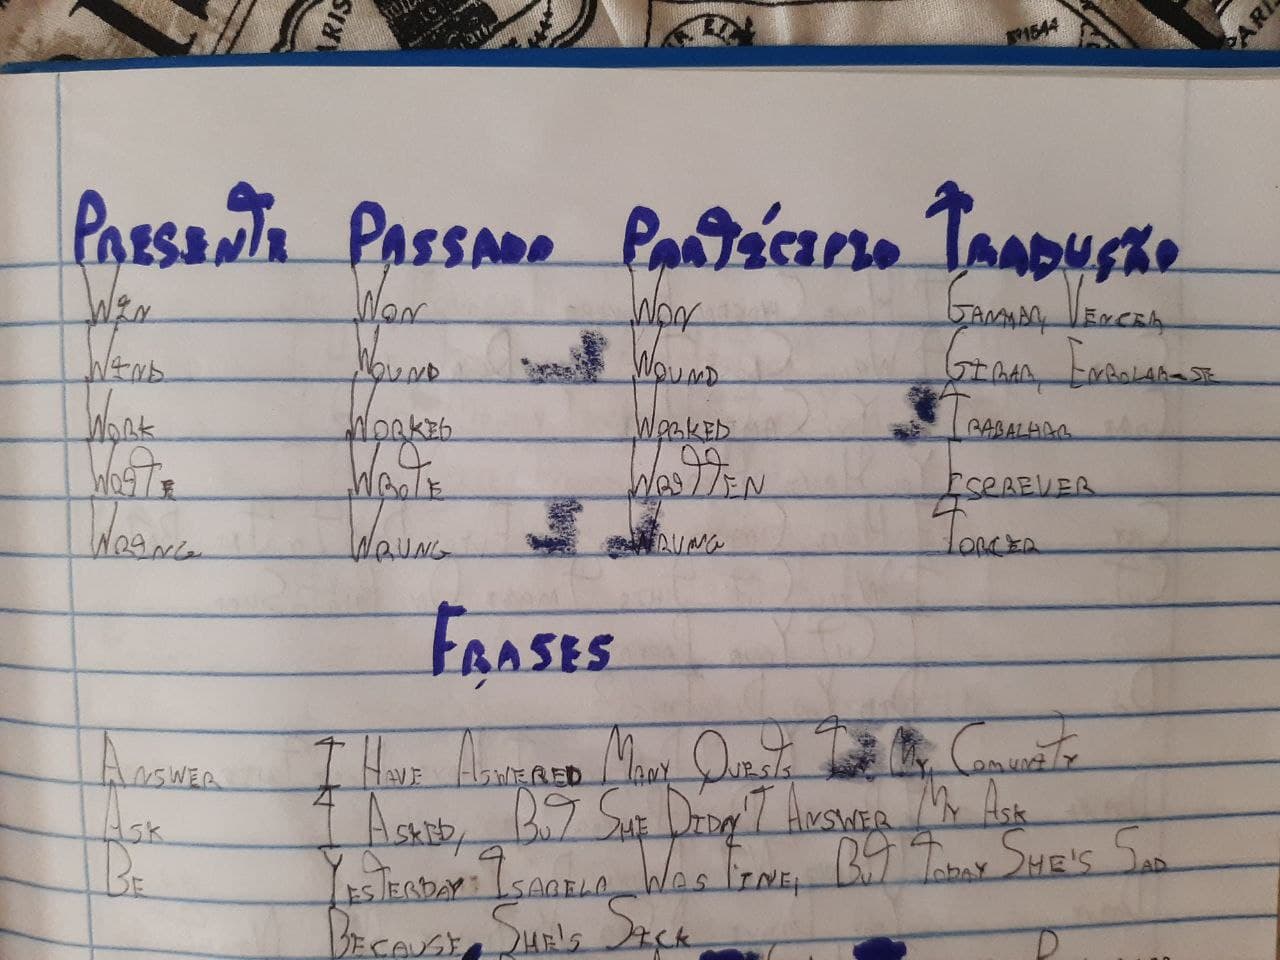 PARIS
Nº1544
PARIS
Presente Passado Particípio Tradução
Win Won Won Ganhar, Vencer
Wind Wound Wound Girar, Enrolar-se
Work Worked Worked Trabalhar
Write Wrote Written Escrever
Wring Wrung Wrung Torcer
Frases
Answer I Have Aswered Many Quests My Comunity
Ask I Asked, But She Didn't Answer My Ask
Be Yesterday Isabela Was Fine, But Today She's Sad
Because She's Sick